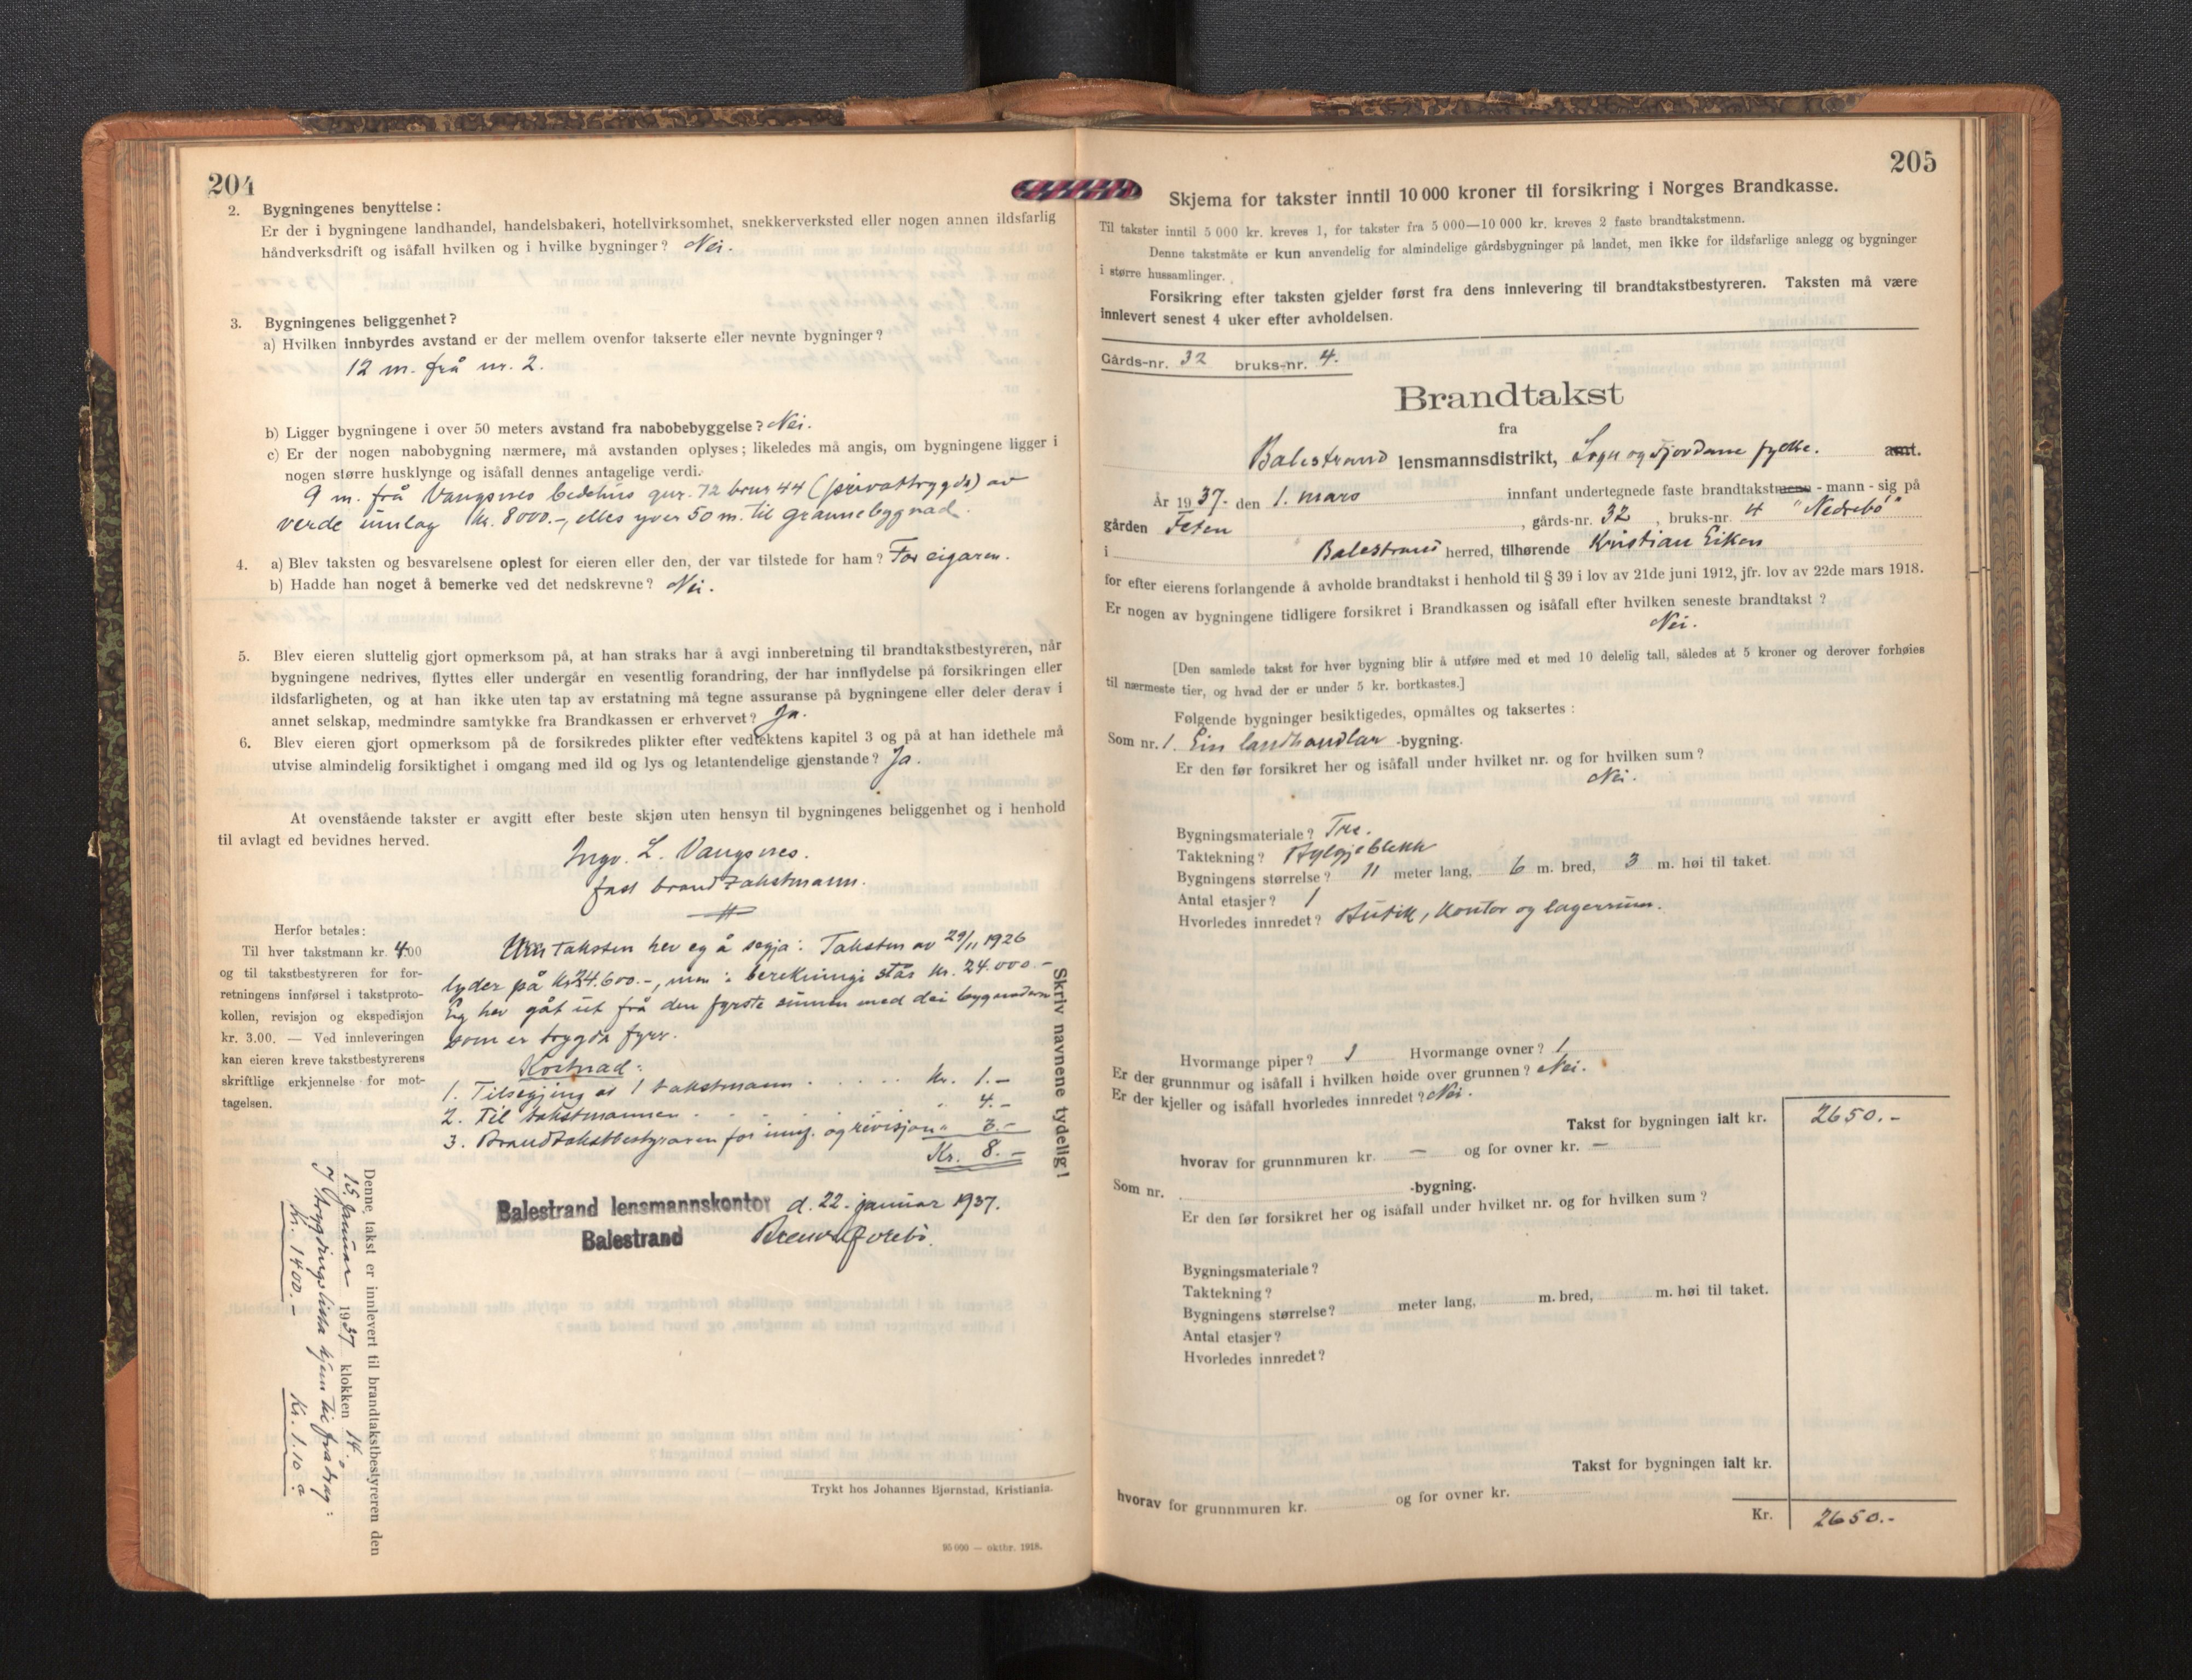 204
2. Bygningenes benyttelse :
Er der i bygningene landhandel, handelsbakeri, hotellvirksomhet, snekkerverksted eller nogen annen ildsfarlig
håndverksdrift og isåfall hvilken og i hvilke bygninger? Nei.
3. Bygningenes beliggenhet?
a) Hvilken innbyrdes avstand er der mellem ovenfor takserte eller nevnte bygninger?
12 m. frå nr. 2.
b) Ligger bygningene i over 50 meters avstand fra nabobebyggelse? Nei.
c) Er der nogen nabobygning nærmere, må avstanden oplyses; likeledes må angis, om bygningene ligger i
nogen større husklynge og isåfall dennes antagelige verdi.
9 m. frå Vangsnes bedehus gnr. 72 bruk 44 (privattrygda) av
verde umlag kr. 8000.-, elles yver 50 m. til grannebygnad.
4. a) Blev taksten og besvarelsene oplest for eieren eller den, der var tilstede for ham? For eigaren.
b) Hadde han noget å bemerke ved det nedskrevne? Nei.
5. Blev eieren sluttelig gjort opmerksom på, at han straks har å avgi innberetning til brandtakstbestyreren, når
bygningene nedrives, flyttes eller undergår en vesentlig forandring, der har innflydelse på forsikringen eller
ildsfarligheten, og at han ikke uten tap av erstatning må tegne assuranse på bygningene eller deler derav i
annet selskap, medmindre samtykke fra Brandkassen er erhvervet? Ja.
6. Blev eieren gjort opmerksom på de forsikredes plikter efter vedtektens kapitel 3 og på at han idethele må
utvise almindelig forsiktighet i omgang med ild og lys og letantendelige gjenstande? Ja.
At ovenstående takster er avgitt efter beste skjøn uten hensyn til bygningenes beliggenhet og i henhold
til avlagt ed bevidnes herved.
Ingv. L. Vangsnes.
fast brandtakstmann.
Herfor betales:
Til hver takstmann kr. 4.00
og til takstbestyreren for for-
retningens innførsel i takstproto-
kollen, revisjon og ekspedisjon
kr. 3.00. — Ved innleveringen
kan eieren kreve takstbestyrerens
skriftlige erkjennelse for mot-
tagelsen.
Um taksten her eg å segja: Taksten av 29/11 1926
lyder på kr 24.600.-, men i berekningi står kr. 24.000.-
Eg her gåt ut frå den fyrste summen med dei bygnadern
som er trygda fyrr.
Kostnad:
1. Tilsegjing av 1 takstmann . . . . . kr. 1.-
2. Til takstmannen . . . " 4.-
3. Brandtakstbestyraren for innf. og revisjon " 3.-
Kr. 8.-
Skriv navnene tydelig!
Balestrand lensmannskontor d. 22. januar 1937.
Balestrand
Denne takst er innlevert til brandtakstbestyreren den
15. januar 1937 klokken 14.
I trygdingslista kjem til frådrag:
Kr. 1400.- Kr. 1.10
Trykt hos Johannes Bjørnstad, Kristiania.
95 000 — oktbr. 1918.
205
Skjema for takster inntil 10 000 kroner til forsikring i Norges Brandkasse.
Til takster inntil 5 000 kr. kreves 1, for takster fra 5 000—10 000 kr. kreves 2 faste brandtakstmenn.
Denne takstmåte er kun anvendelig for almindelige gårdsbygninger på landet, men ikke for ildsfarlige anlegg og bygninger
i større hussamlinger.
Forsikring efter taksten gjelder først fra dens innlevering til brandtakstbestyreren. Taksten må være
innlevert senest 4 uker efter avholdelsen.
Gårds-nr. 32 bruks-nr. 4.
Brandtakst
fra
Balestrand lensmannsdistrikt, Sogn og Fjordane fylke. amt.
År 1937. den 1. mars innfant undertegnede faste brandtakstmenn - mann - sig på
gården Feten , gårds-nr. 32 , bruks-nr. 4 "Nedrebø"
i Balestrand herred, tilhørende Kristian Eiken
for efter eierens forlangende å avholde brandtakst i henhold til § 39 i lov av 21de juni 1912, jfr. lov av 22de mars 1918.
Er nogen av bygningene tidligere forsikret i Brandkassen og isåfall efter hvilken seneste brandtakst ?
Nei.
[Den samlede takst for hver bygning blir å utføre med et med 10 delelig tall, således at 5 kroner og derover forhøies
til nærmeste tier, og hvad der er under 5 kr. bortkastes.]
Følgende bygninger besiktigedes, opmåltes og taksertes :
Som nr. 1. Ein landhandlar -bygning.
Er den før forsikret her og isåfall under hvilket nr. og for hvilken sum?
Nei.
Bygningsmateriale? Tre.
Taktekning? Bylgjeblekk
Bygningens størrelse? 11 meter lang, 6 m. bred, 3 m. høi til taket.
Antal etasjer? 1
Hvorledes innredet? Butik, kontor og lagerrum.
Hvormange piper? 1 Hvormange ovner? 1
Er der grunnmur og isåfall i hvilken høide over grunnen? Nei.
Er der kjeller og isåfall hvorledes innredet? Nei.
Takst for bygningen ialt kr. 2650.-
hvorav for grunnmuren kr. — og for ovner kr. —
Som nr. -bygning.
Er den før forsikret her og isåfall under hvilket nr. og for hvilken sum ?
Bygningsmateriale?
Taktekning?
Bygningens størrelse? meter lang, m. bred, m. høi til taket.
Antal etasjer?
Hvorledes innredet?
Takst for bygningen ialt kr.
hvorav for grunnmuren kr. og for ovner kr.
Kr. 2650.-